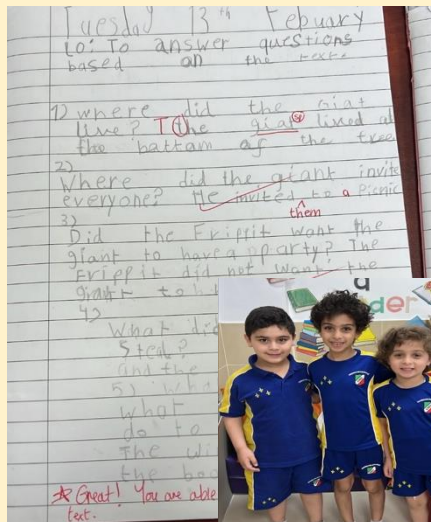 Tuesday 13th Febuary
Lo: To answer questions
based on the text.
1) where did the giat
live? T the giat lived at
the battam of the tree
2)
Where did the giant invite
everyone? He invited to a Picnic
them
3)
Did the Frippit want the
giant to have a party? The
Frippit did not want the
giant to
4)
What did
Steal?
and the
5) Wha
What
do to
The wi
the boo
Great! You are able
text.